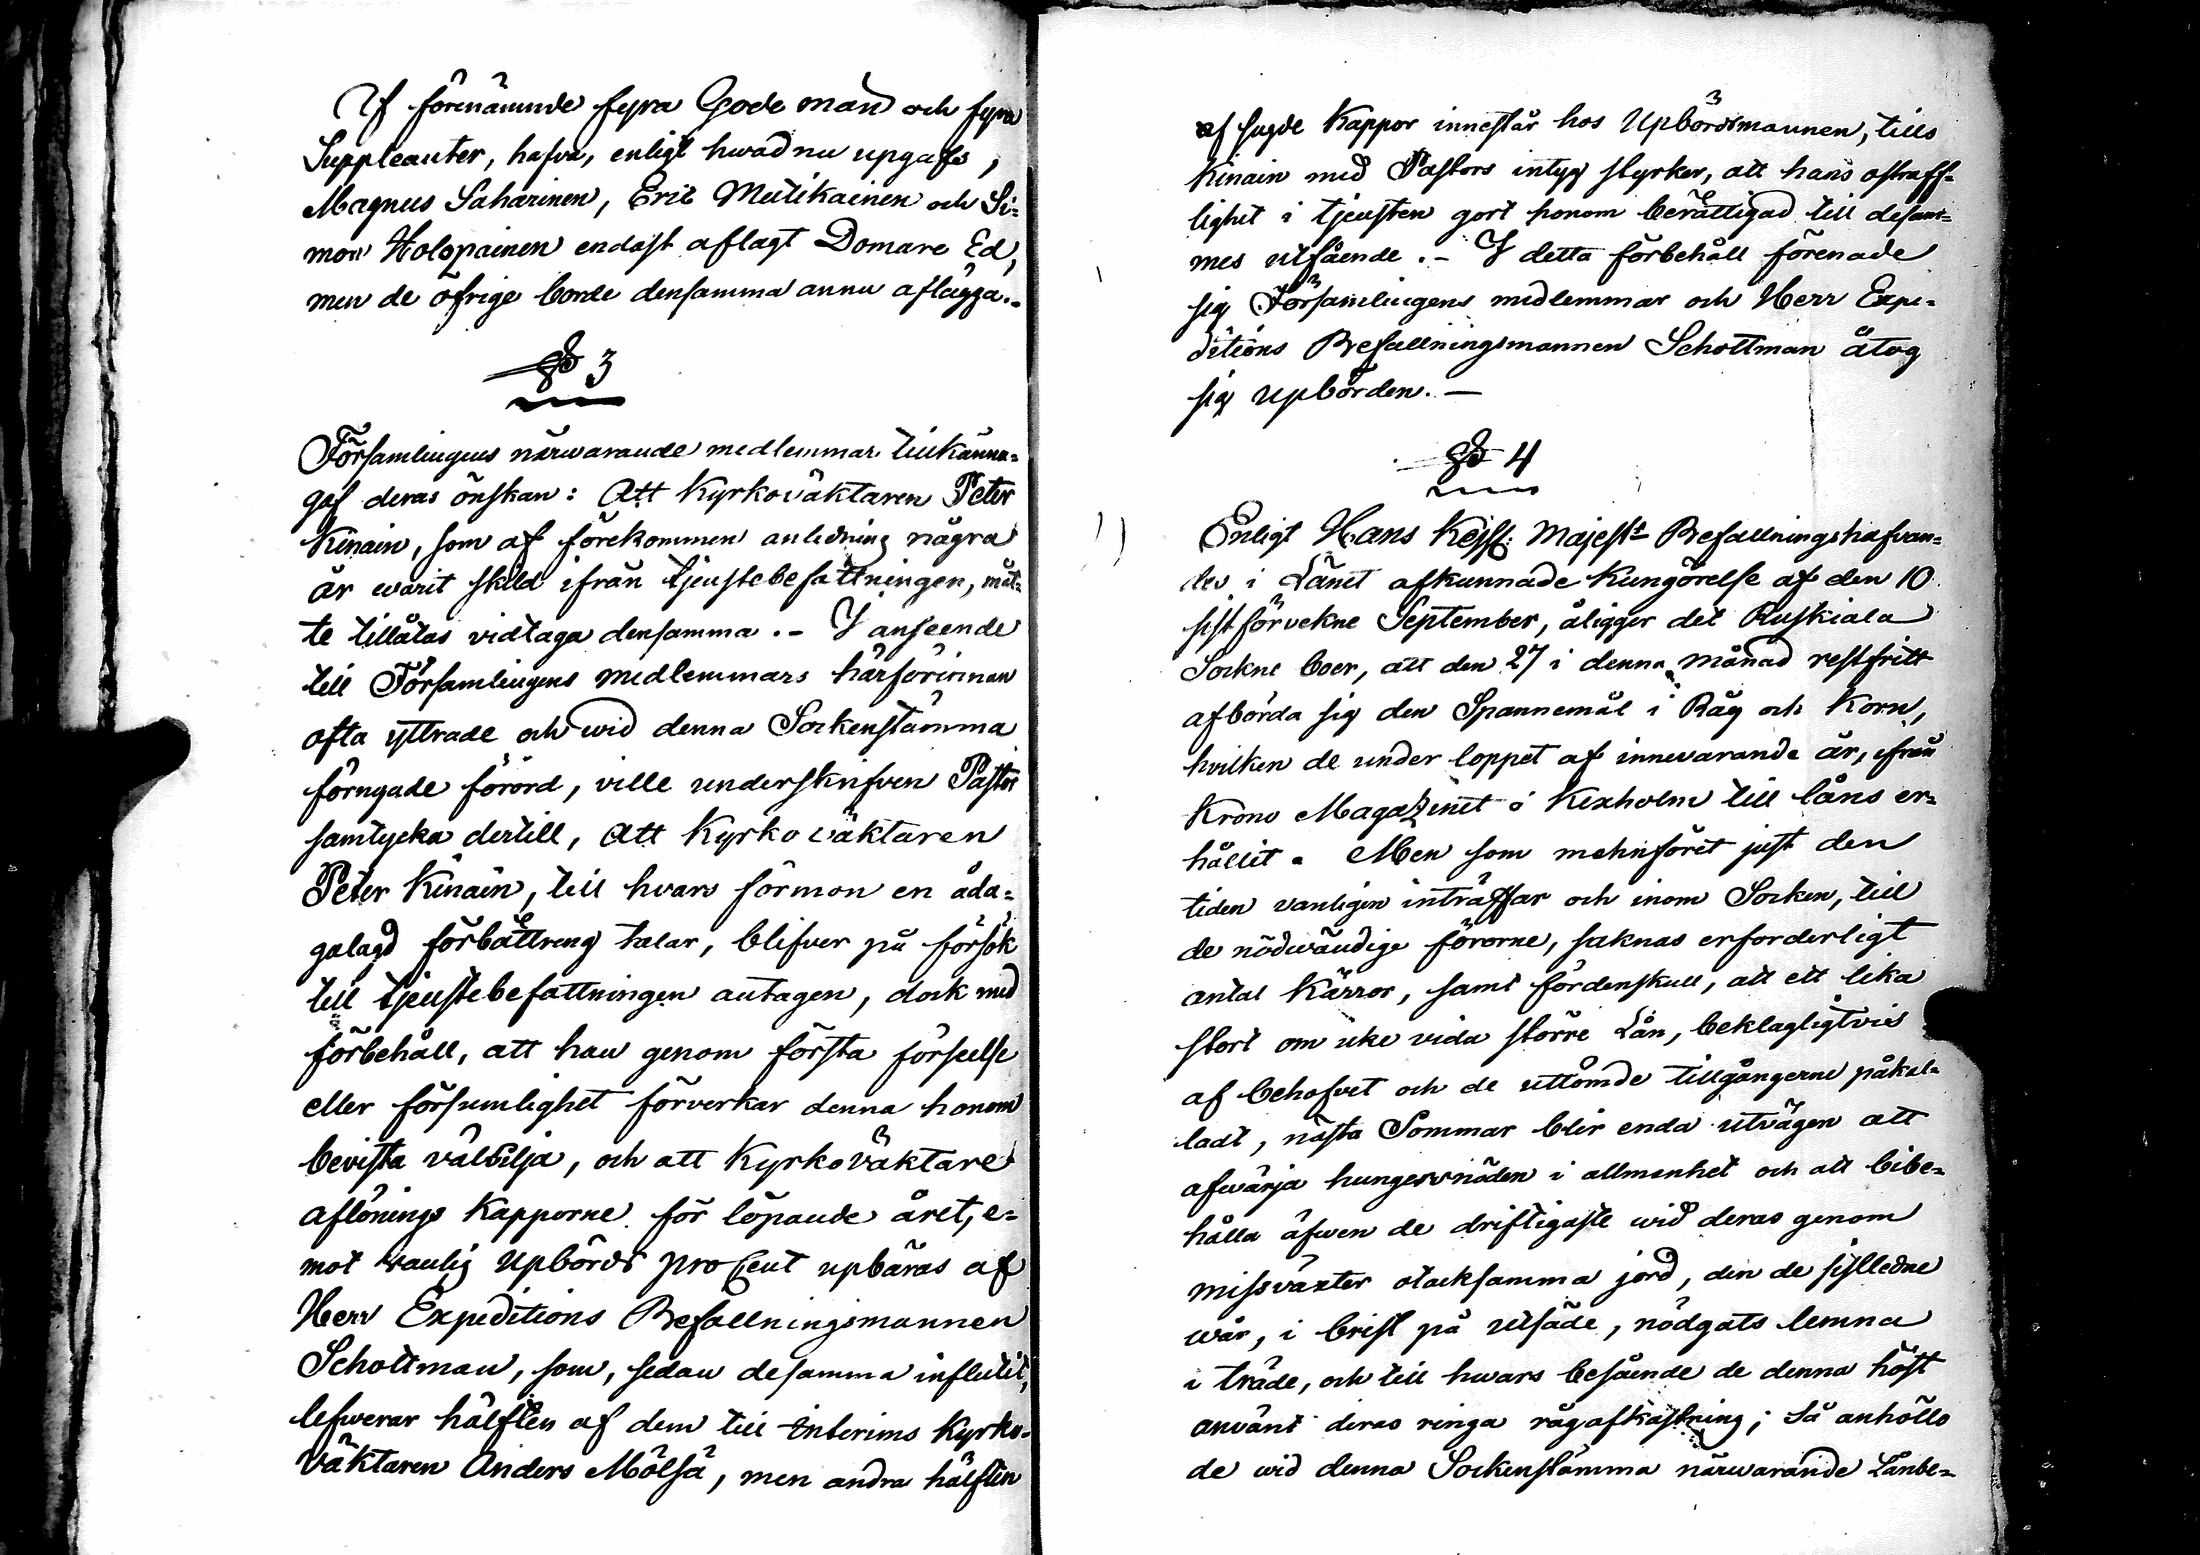 Af förenämnde fyra Gode män och fyra
Suppleanter, hafva, enligt hwad nu upgafs,
Magnus Saharinen, Eric Mutikainen och Si-
mon Holopainen endast aflagt Domare Ed,
men de öfrige borde densamma ännu aflägga.-
§ 3
Församlingens närwarande medlemmar tillkänna-
gaf deras önskan: Att Kyrkoväktaren Peter
Kinain, som af förekommen anledning några
år warit skild ifrån tjenstebefattningen, måt-
te tillåtas vidtaga densamma.- I anseende
till Församlingens medlemmars härförinnan
ofta yttrade och wid denna Sockenstämma
förnyade förord, ville underskrifven Pastor
samtycka dertill, att Kyrkoväktaren
Peter Kinain, till hvars förmon en åda-
galagd förbättring talar, blifver på försök
till tjenstebefattningen antagen, dock med
förbehåll, att han genom första förseelse
eller försumlighet förverkar denna honom
bevista välvilja, och att Kyrkoväktare
aflönings Kapporne för löpande året, e-
mot vanlig Upbörds pro Cent upbäras af
Herr Expeditions Befallningsmannen
Schottman, som, sedan desamma influtit,
lefwerar hälften af dem till Interims Kyrko-
Väktaren Anders Mölsä, men andra hälften
af sagde Kappor innestår hos Upbördsmannen, tills
Kinain med Pastors intyg styrker, att hans ostraff-
lighet i tjensten gort honom berättigad till desam-
mes utfående.- I detta förbehåll förenade
sig Församlingens medlemmar och Herr Expe-
ditions Befallningsmannen Schottman åtog
sig upbörden.-
§ 4
Enligt Hans Kejs. Majest:s Befallningshafvan-
des i Länet afkunnade Kungörelse af den 10
sistförvekne September, åligger det Ruskiala
Sockne boer, att den 27 i denna månad restfritt
afbörda sig den Spannemål i Råg och Korn,
hvilken de under loppet af innevarande år, ifrån
Krono Magazinet i Kexholm till låns er-
hållit. Men som mehnföret just den
tiden vanligen inträffar och inom Socken, till
de nödwändige förorne, saknas erforderligt
antal Kärror, samt fördenskull, att ett lika
stort om icke vida större Lån, beklagligtvis
af behofvet och de uttömde tillgångerne påkal-
ladt, nästa Sommar blir enda utvägen att
afwärja hungersnöden i allmenhet och att bibe-
hålla äfwen de driftigaste wid deras genom
missväxter otacksamma jord, den de sistledne
wår, i brist på utsäde, nödgats lemna
i träde, och till hwars besående de denna höst
använt deras ringa rågafkastning; Så anhöllo
de wid denna Sockenstämma närwarande Lånbe-